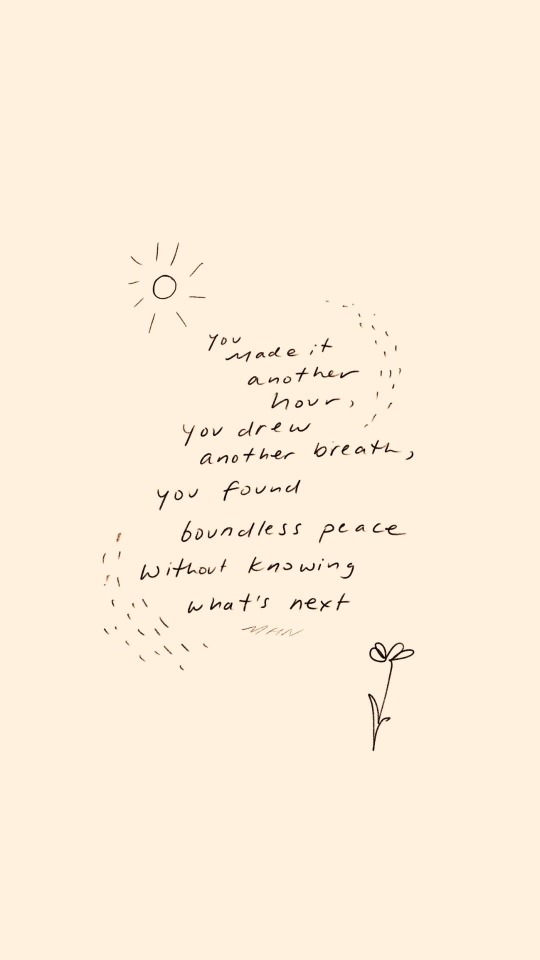 you
made it
another
hour,
you drew
another breath,
you found
boundless peace
without knowing
what's next
MHN